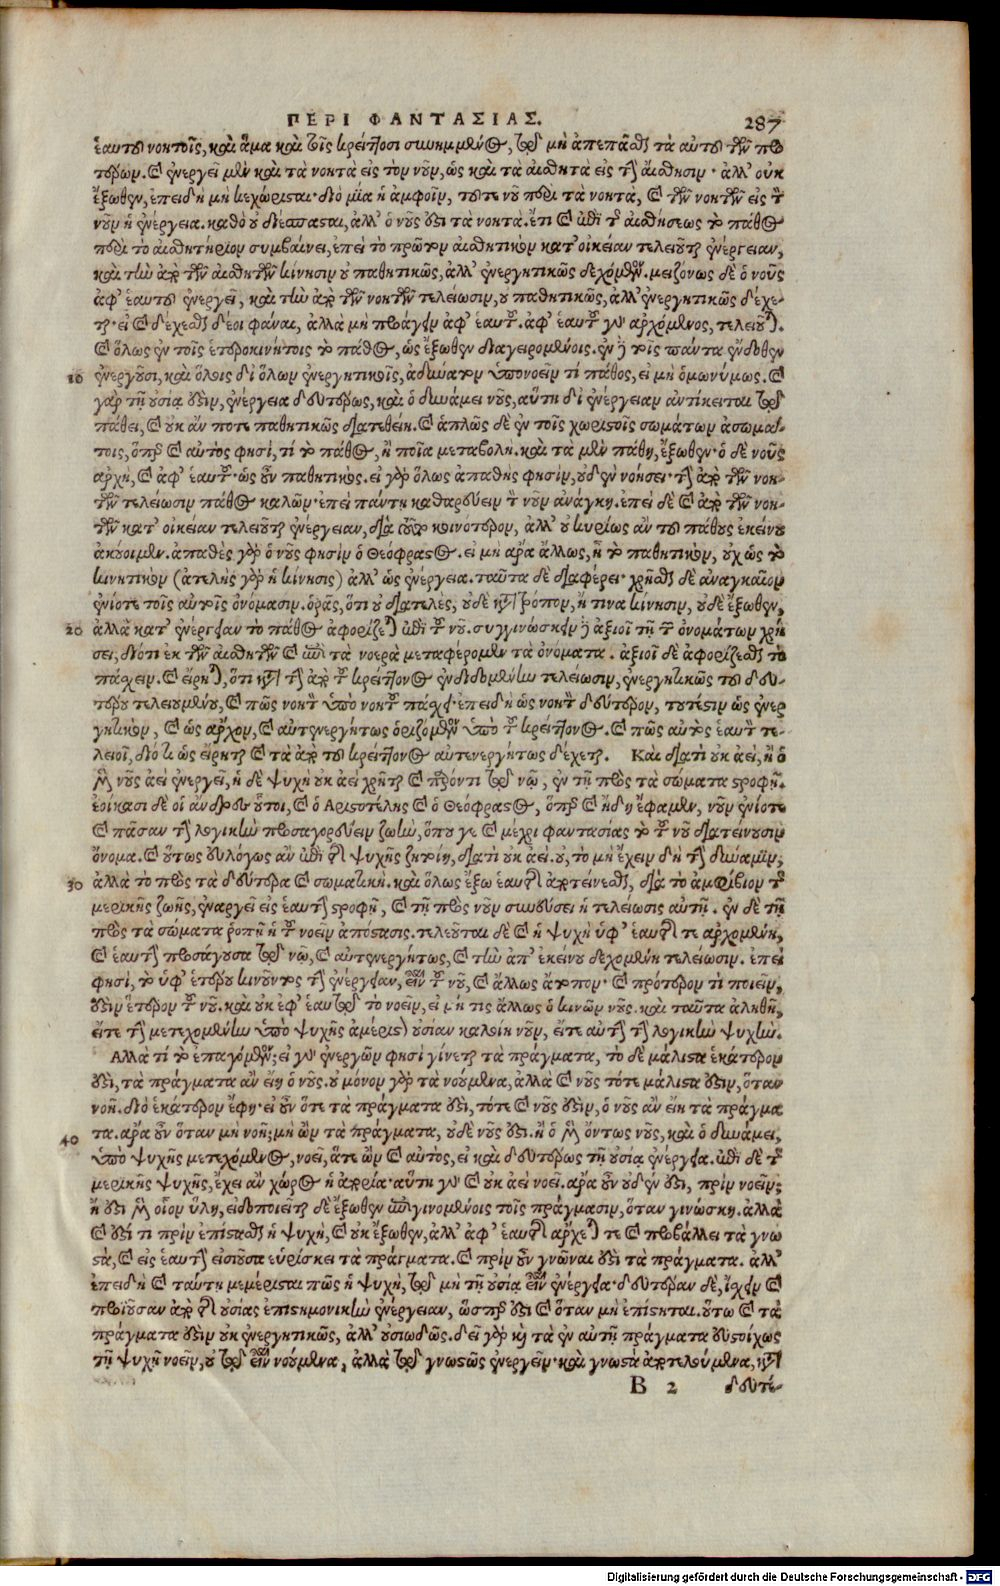 ΠΕΡΙ ΦΑΝΤΑΣΙΑΣ. 287
ἑαυτοῦ νοητοῖς, καὶ ἅμα καὶ τοῖς κρείττοσι συνημμένος, τῷ μὴ ἀπεσπᾶσθαι τὰ αὐτοῦ τῶν πρω
τέρων. καὶ ἐνεργεῖ μὲν καὶ τὰ νοητὰ εἰς τὸν νοῦν, ὡς καὶ τὰ αἰσθητὰ εἰς τὴν αἴσθησιν· ἀλλ' οὐκ
ἔξωθεν, ἐπειδὴ μὴ κεχώρισται· διὸ μία ἡ ἀμφοῖν, τοῦτε νοῦ περὶ τὰ νοητὰ, καὶ τῶν νοητῶν εἰς τὸν
νοῦν ἡ ἐνέργεια. καθὸ οὐ διέσπασται, ἀλλ' ὁ νοῦς ἐστι τὰ νοητά. ἔτι καὶ ἐπὶ τῆς αἰσθήσεως τὸ πάθος
περὶ τὸ αἰσθητήριον συμβαίνει, ἐπεὶ τὸ πρῶτον αἰσθητικὸν κατ' οἰκείαν τελειοῦται ἐνέργειαν,
καὶ τὴν ἀπὸ τῶν αἰσθητῶν κίνησιν οὐ παθητικῶς, ἀλλ' ἐνεργητικῶς δεχόμενον. μειζόνως δὲ ὁ νοῦς
ἀφ' ἑαυτοῦ ἐνεργεῖ, καὶ τὴν ἀπὸ τῶν νοητῶν τελείωσιν, οὐ παθητικῶς, ἀλλ' ἐνεργητικῶς δέχε-
ται· εἰ καὶ δέχεσθαι δέοι φάναι, ἀλλὰ μὴ προάγειν ἀφ' ἑαυτοῦ. ἀφ' ἑαυτοῦ γὰρ ἀρχόμενος, τελειοῦται.
καὶ ὅλως ἐν τοῖς ἑτεροκινήτοις τὸ πάθος, ὡς ἔξωθεν διαγειρομένοις. ἐν δὲ τοῖς πάντα ἔνδοθεν
10 ἐνεργοῦσι, καὶ ὅλοις δι' ὅλων ἐνεργητικοῖς, ἀδύνατον ὑπονοεῖν τί πάθος, εἰ μὴ ὁμωνύμως. καὶ
γὰρ τῇ οὐσίᾳ ἐστὶν, ἐνέργεια δευτέρως, καὶ ὁ δυνάμει νοῦς, αὕτη δι' ἐνέργειαν ἀντίκειται τῷ
πάθει, καὶ οὐκ ἄν ποτε παθητικῶς διατεθείη. καὶ ἁπλῶς δὲ ἐν τοῖς χωριστοῖς σωμάτων ἀσωμά-
τοις, ὅπερ καὶ αὐτός φησι, τί τὸ πάθος, ἢ ποῖα μεταβολή. καὶ τὰ μὲν πάθη, ἔξωθεν· ὁ δὲ νοῦς
ἀρχὴ, καὶ ἀφ' ἑαυτοῦ· ὡς οὖν παθητικός. εἰ γὰρ ὅλως ἀπαθής φησιν, οὐδὲν νοήσει· τὴν ἀπὸ τῶν νοη-
τῶν τελείωσιν πάθος καλῶν· ἐπεὶ πάντη καθαρεύειν τὸν νοῦν ἀνάγκη. ἐπεὶ δὲ καὶ ἀπὸ τῶν νοη-
τῶν κατ' οἰκείαν τελειοῦται ἐνέργειαν, διὰ τοῦτο κοινότερον, ἀλλ' οὐ κυρίως ἂν τοῦ πάθους ἐκείνου
ἀκούοιμεν. ἀπαθὲς γὰρ ὁ νοῦς φησὶν ὁ Θεόφραστος. εἰ μὴ ἄρα ἄλλως, ᾖ τὸ παθητικὸν, οὐχ ὡς τὸ
κινητικὸν (ἀτελὴς γὰρ ἡ κίνησις) ἀλλ' ὡς ἐνέργεια. ταῦτα δὲ διαφέρει· χρῆσθαι δὲ ἀναγκαῖον
ἐνίοτε τοῖς αὐτοῖς ὀνόμασιν. ὁρᾷς, ὅτι οὐ διατελὲς, οὐδὲ κατὰ τρόπον, ἤ τινα κίνησιν, οὐδὲ ἔξωθεν,
20 ἀλλὰ κατ' ἐνέργειαν τὸ πάθος ἀφορίζεται ἐπὶ τοῦ νοῦ. συγγινώσκειν δὲ ἀξιοῖ τῇ τῶν ὀνομάτων χρή
σει, διότι ἐκ τῶν αἰσθητῶν καὶ ἐπὶ τὰ νοερὰ μεταφέρομεν τὰ ὀνόματα. ἀξιοῖ δὲ ἀφορίζεσθαι τὸ
πάσχειν. καὶ εἴρηται, ὅτι κατὰ τὴν ἀπὸ τοῦ κρείττονος ἐνδιδομένην τελείωσιν, ἐνεργητικῶς τοῦ δευ-
τέρου τελειουμένου, καὶ πῶς νοητὸν ὑπὸ νοητοῦ πάσχει· ἐπειδὴ ὡς νοητὸν δεύτερον, τουτέστιν ὡς ἐνερ
γητικὸν, καὶ ὡς ἄρχον, καὶ αὐτενεργήτως ὁριζόμενον ὑπὸ τοῦ κρείττονος. καὶ πῶς αὐτὸς ἑαυτὸν τε-
λειοῖ, διότι ὡς εἴρηται καὶ τὰ ἀπὸ τοῦ κρείττονος αὐτενεργήτως δέχεται. Καὶ διατὶ οὐκ ἀεὶ, ἢ ὁ
μὲν νοῦς ἀεὶ ἐνεργεῖ, ἡ δὲ ψυχὴ οὐκ ἀεὶ χρῆται καὶ παρόντι τῷ νῷ, ἐν τῇ πρὸς τὰ σώματα στροφῇ.
ἐοίκασι δὲ οἱ ἄνδρες οὗτοι, καὶ ὁ Ἀριστοτέλης καὶ ὁ Θεόφραστος, ὅπερ καὶ ἤδη ἔφαμεν, νοῦν ἐνίοτε
καὶ πᾶσαν τὴν λογικὴν προσαγορεύειν ζωὴν, ὅπου γε καὶ μέχρι φαντασίας τὸ τοῦ νοῦ διατείνουσιν
ὄνομα. καὶ οὕτως εὐλόγως ἂν ἐπὶ τῆς ψυχῆς ζητοίη, διατὶ οὐκ ἀεί. οὐ, τὸ μὴ ἔχειν δὴ τὴν δύναμιν,
30 ἀλλὰ τὸ πρὸς τὰ δεύτερα καὶ σωματικὴ. καὶ ὅλως ἔξω ἑαυτῆς ἀποτείνεσθαι, διὰ τὸ ἀμφίβιον τῆς
μερικῆς ζωῆς, ἐναργεῖ εἰς ἑαυτὴν στροφῇ, καὶ τῇ πρὸς νοῦν συνεύσει ἡ τελείωσις αὐτῇ. ἐν δὲ τῇ
πρὸς τὰ σώματα ῥοπῇ ἡ τοῦ νοεῖν ἀπόστασις. τελεῦται δὲ καὶ ἡ ψυχὴ ὑφ' ἑαυτῆς τε ἀρχομένη,
καὶ ἑαυτὴν προσάγουσα τῷ νῷ, καὶ αὐτενεργήτως, καὶ τὴν ἀπ' ἐκείνου δεχομένη τελείωσιν. ἐπεὶ
φησὶ, τὸ ὑφ' ἑτέρου κινοῦντος τὴν ἐνέργειαν, εἶναι τοῦ νοῦ, καὶ ἄλλως ἄτοπον· καὶ πρότερον τὶ ποιεῖν,
ἐστὶν ἕτερον τοῦ νοῦ. καὶ οὐκ ἐφ' ἑαυτῷ τὸ νοεῖν, εἰ μή τις ἄλλως ὁ κινῶν νοῦς. καὶ ταῦτα ἀληθῆ,
εἴτε τὴν μετεχομένην ὑπὸ ψυχῆς ἀμέριστον οὐσίαν καλοίη νοῦν, εἴτε αὐτὴν τὴν λογικὴν ψυχήν.
Ἀλλὰ τί τὸ ἐπαγόμενον; εἰ γὰρ ἐνεργῶν φησὶ γίνεται τὰ πράγματα, τὸ δὲ μάλιστα ἑκάτερον
ἐστὶ, τὰ πράγματα ἂν εἴη ὁ νοῦς. οὐ μόνον γὰρ τὰ νοούμενα, ἀλλὰ καὶ νοῦς τότε μάλιστα ἐστὶν, ὅταν
νοῇ. διὸ ἑκάτερον ἔφη· εἰ οὖν ὅτε τὰ πράγματα ἐστὶ, τότε καὶ νοῦς ἐστὶν, ὁ νοῦς ἂν εἴη τὰ πράγμα
40 τα. ἆρα οὖν ὅταν μὴ νοῇ; μὴ ὢν τὰ πράγματα, οὐδὲ νοῦς ἐστι. ἢ ὁ μὲν ὄντως νοῦς, καὶ ὁ δυνάμει,
ὑπὸ ψυχῆς μετεχόμενος, νοεῖ, ἅτε ὢν καὶ αὐτὸς, εἰ καὶ δευτέρως τῇ οὐσίᾳ ἐνέργεια. ἐπὶ δὲ τῆς
μερικῆς ψυχῆς, ἔχει ἂν χώραν ἡ ἀπορία· αὕτη γὰρ καὶ οὐκ ἀεὶ νοεῖ. ἆρα οὖν οὐδέν ἐστι, πρὶν νοεῖν;
ἢ ἐστὶ μὲν οἷον ὕλη, εἰδοποιεῖται δὲ ἔξωθεν ἐπιγινομένοις τοῖς πράγμασιν, ὅταν γινώσκῃ. ἀλλὰ
καὶ ἐστί τι πρὶν ἐπίστασθαι ἡ ψυχὴ, καὶ οὐκ ἔξωθεν, ἀλλ' ἀφ' ἑαυτῆς ἄρχεταί τε καὶ προβάλλει τὰ γνω
στὰ, καὶ εἰς ἑαυτὴν εἰσιοῦσα εὑρίσκει τὰ πράγματα. καὶ πρὶν οὖν γνῶναι ἐστὶ τὰ πράγματα. ἀλλ'
ἐπειδὴ καὶ ταύτῃ μεμέρισται πῶς ἡ ψυχὴ, τῷ μὴ τῇ οὐσίᾳ εἶναι ἐνέργεια· δευτέραν δὲ, ἴσχειν καὶ
προϊοῦσαν ἀπὸ τῆς οὐσίας ἐπιστημονικὴν ἐνέργειαν, ὥσπερ ἐστὶ καὶ ὅταν μὴ ἐπίστηται. οὕτω καὶ τὰ
πράγματα ἐστὶν οὐκ ἐνεργητικῶς, ἀλλ' οὐσιωδῶς. δεῖ γὰρ καὶ τὰ ἐν αὐτῇ πράγματα εὐστοίχως
τῇ ψυχῇ νοεῖν, οὐ τῷ εἶναι νοούμενα, ἀλλὰ τῷ γνωστῶς ἐνεργεῖν· καὶ γνωστὰ ἀποτελούμενα, κατὰ
B 2 δευτέ-
Digitalisierung gefördert durch die Deutsche Forschungsgemeinschaft - DFG